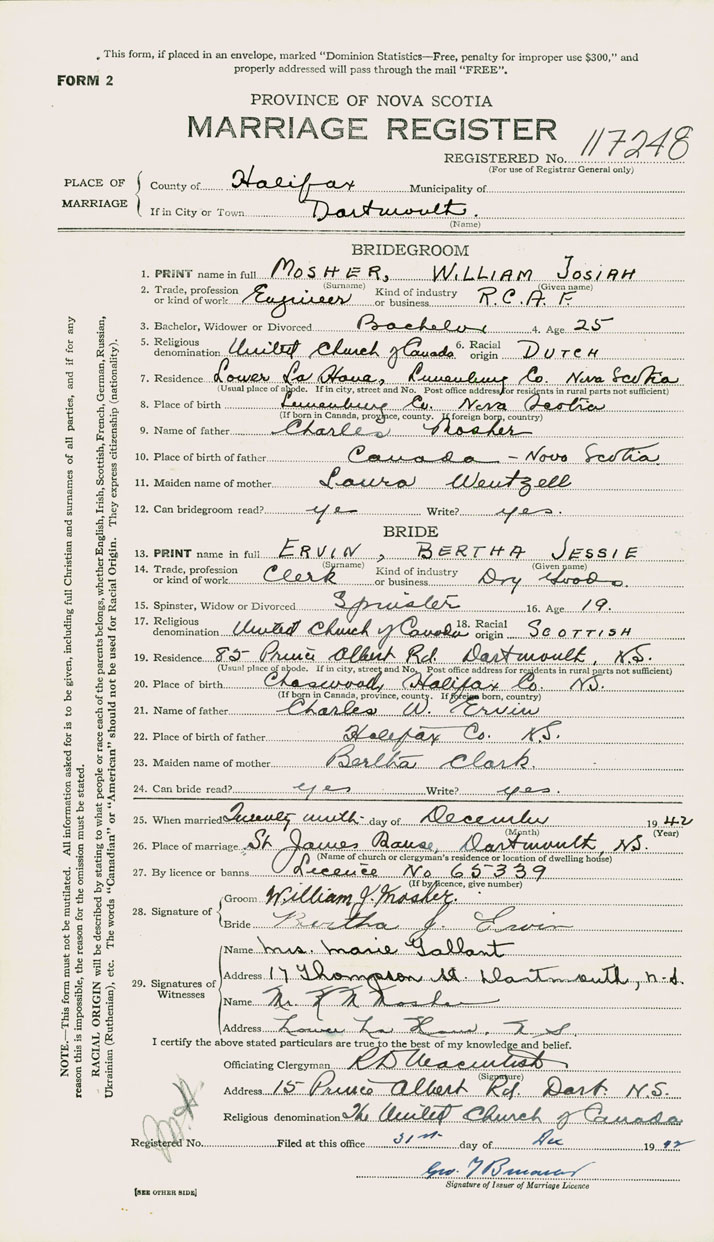 This form, if placed in an envelope, marked “Dominion Statistics—Free, penalty for improper use $300,” and
properly addressed will pass through the mail “FREE”.
FORM 2
PROVINCE OF NOVA SCOTIA
MARRIAGE REGISTER
REGISTERED No. 117248
(For use of Registrar General only)
PLACE OF MARRIAGE
County of Halifax Municipality of
If in City or Town Dartmouth.
(Name)
BRIDEGROOM
1. PRINT name in full MOSHER, WILLIAM JOSIAH
(Surname) (Given name)
2. Trade, profession or kind of work Engineer Kind of industry or business R.C.A.F.
3. Bachelor, Widower or Divorced Bachelor 4. Age 25
5. Religious denomination United Church of Canada 6. Racial origin DUTCH
7. Residence Lower La Have, Lunenburg Co. Nova Scotia
(Usual place of abode. If in city, street and No. Post office address for residents in rural parts not sufficient)
8. Place of birth Lunenburg Co. Nova Scotia
(If born in Canada, province, county. If foreign born, country)
9. Name of father Charles Mosher
10. Place of birth of father Canada - Nova Scotia
11. Maiden name of mother Laura Wentzell
12. Can bridegroom read? yes Write? yes.
BRIDE
13. PRINT name in full ERVIN, BERTHA JESSIE
(Surname) (Given name)
14. Trade, profession or kind of work Clerk Kind of industry or business Dry Goods.
15. Spinster, Widow or Divorced Spinster 16. Age 19.
17. Religious denomination United Church of Canada 18. Racial origin SCOTTISH
19. Residence 85 Prince Albert Rd. Dartmouth, N.S.
(Usual place of abode. If in city, street and No. Post office address for residents in rural parts not sufficient)
20. Place of birth Chaswood, Halifax Co. NS.
(If born in Canada, province, county. If foreign born, country)
21. Name of father Charles W. Ervin
22. Place of birth of father Halifax Co. N.S.
23. Maiden name of mother Bertha Clark.
24. Can bride read? yes Write? yes.
25. When married Twenty ninth day of December 1942
(Month) (Year)
26. Place of marriage St James Manse, Dartmouth, NS.
(Name of church or clergyman's residence or location of dwelling house)
27. By licence or banns Licence No 65339
(If by licence, give number)
28. Signature of
Groom William J. Mosher.
Bride Bertha J. Ervin
29. Signatures of Witnesses
Name Mrs. Marie Gallant
Address 17 Thompson St. Dartmouth, N.S.
Name Mr. Mosher
Address Lower La Have, N.S.
I certify the above stated particulars are true to the best of my knowledge and belief.
Officiating Clergyman
(Signature)
Address 15 Prince Albert Rd. Dart. N.S.
Religious denomination The United Church of Canada
Registered No. Filed at this office 31st day of Dec 1942
Signature of Issuer of Marriage Licence
[SEE OTHER SIDE]
NOTE.—This form must not be mutilated. All information asked for is to be given, including full Christian and surnames of all parties, and if for any
reason this is impossible, the reason for the omission must be stated.
RACIAL ORIGIN will be described by stating to what people or race each of the parents belongs, whether English, Irish, Scottish, French, German, Russian,
Ukrainian (Ruthenian), etc. The words “Canadian” or “American” should not be used for Racial Origin. They express citizenship (nationality).